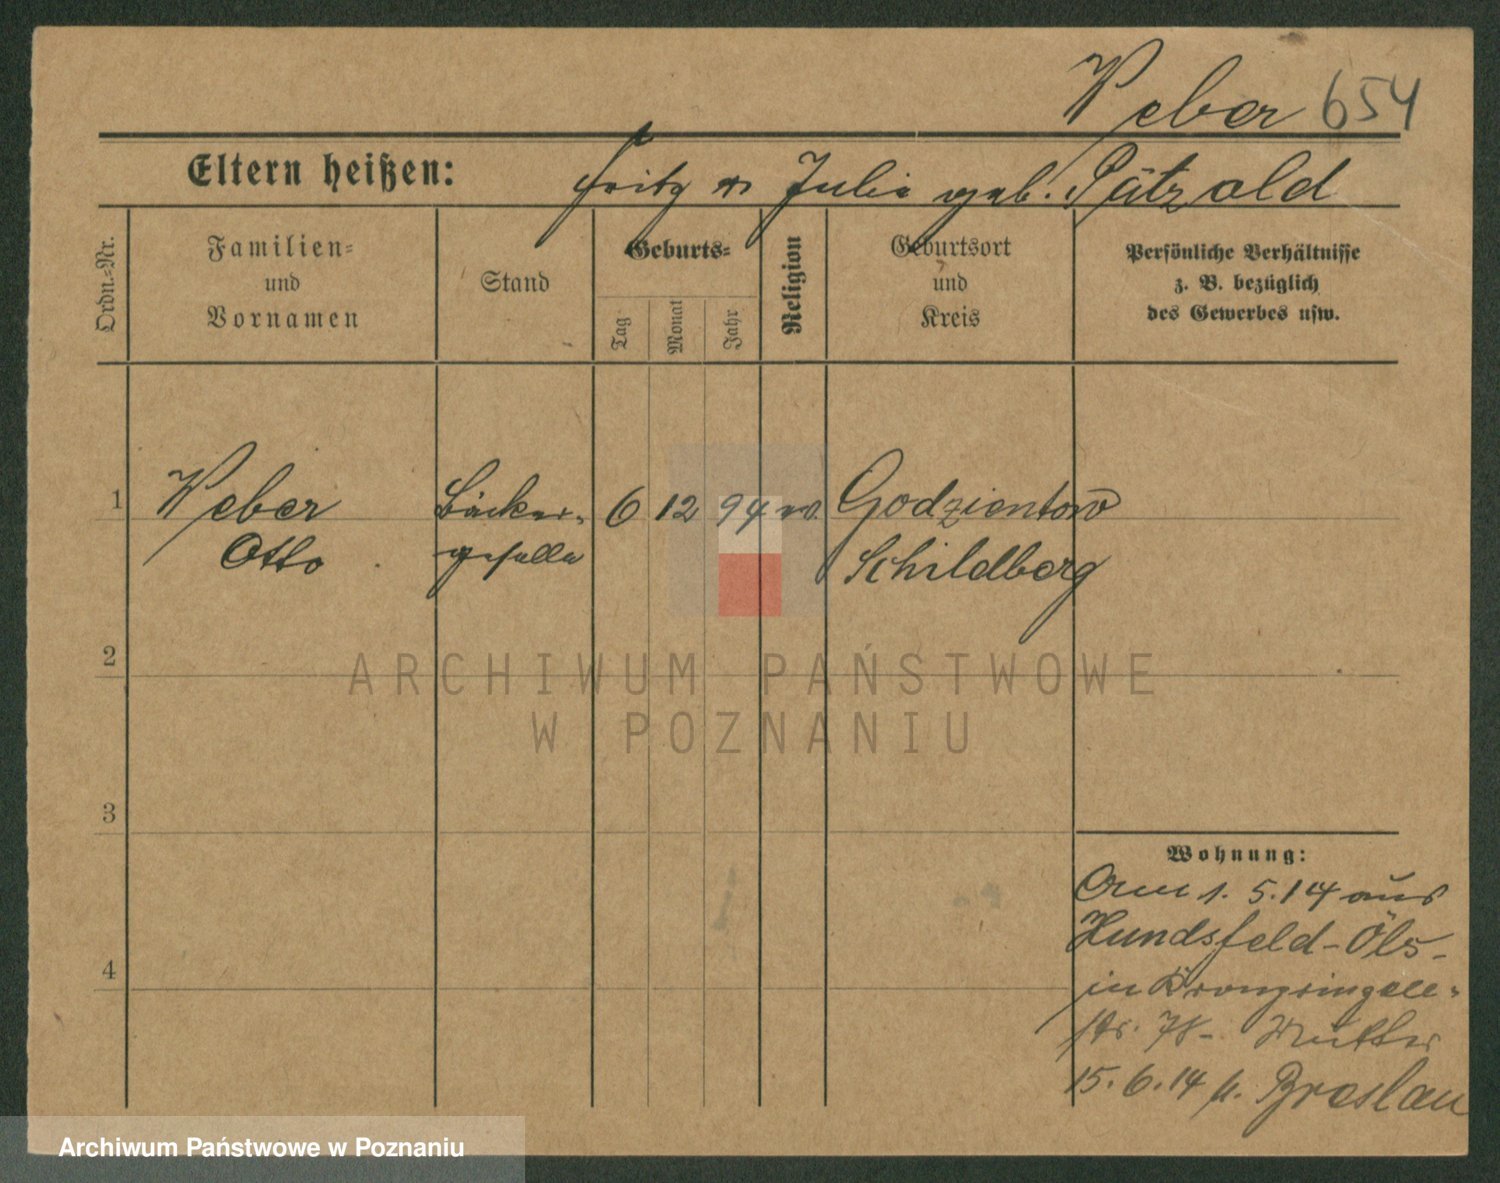 Weber 654
Eltern heißen: Fritz u Julie geb. Pätzold
Ordn.-Nr.
Familien-
und
Vornamen
Stand
Geburts-
Tag
Monat
Jahr
Religion
Geburtsort
und
Kreis
Persönliche Verhältnisse
z. B. bezüglich
des Gewerbes usw.
1 Weber Bäcker- 6 12 94 ev. Godzientow
Otto geselle Schildberg
2
3
4
Wohnung:
1. 5. 14 aus
Hundsfeld-Öls-
in Kronprinzen-
str. 78- Mutter
15. 6. 14 n. Breslau
ARCHIWUM PAŃSTWOWE
W POZNANIU
Archiwum Państwowe w Poznaniu